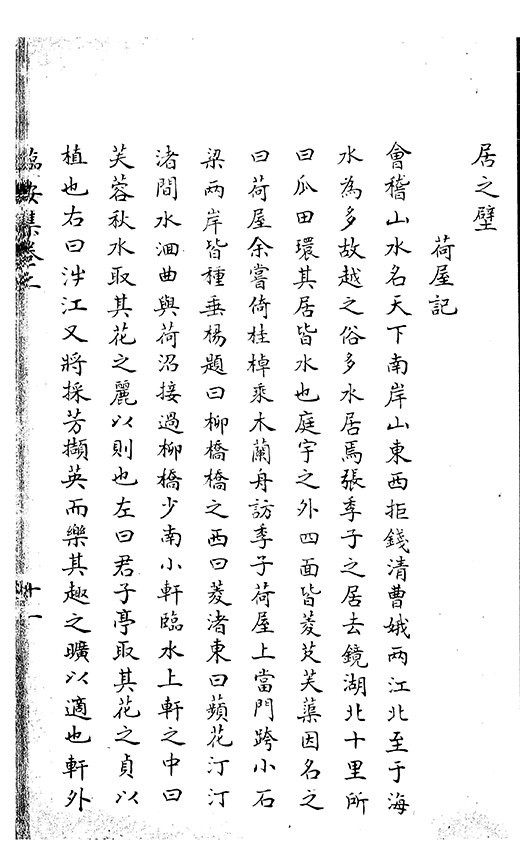 居之壁
荷屋記
會稽山水名天下南岸山東西拒錢清曹娥两江北至于海
水為多故越之俗多水居焉張季子之居去鏡湖北十里所
曰瓜田環其居皆水也庭宇之外四面皆菱芡芙蕖因名之
曰荷屋余嘗倚桂棹乘木蘭舟訪季子荷屋上當門跨小石
梁两岸皆種垂楊題曰柳橋橋之西曰菱渚東曰蘋花汀汀
渚間水洄曲與荷沼接過柳橋少南小軒臨水上軒之中曰
芙蓉秋水取其花之麗以則也左曰君子亭取其花之貞以
植也右曰涉江又將採芳擷英而樂其趣之曠以適也軒外
臨安集卷之 十一